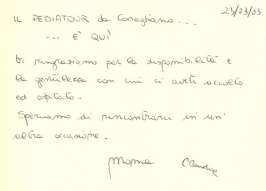 23/03/03
IL PEDIATOUR da Conegliano...
... È QUÌ
Vi ringraziamo per la disponibilità e
la gentilezza con cui ci avete accolto
ed ospitato.
Speriamo di rincontrarci in un'
altra occasione.